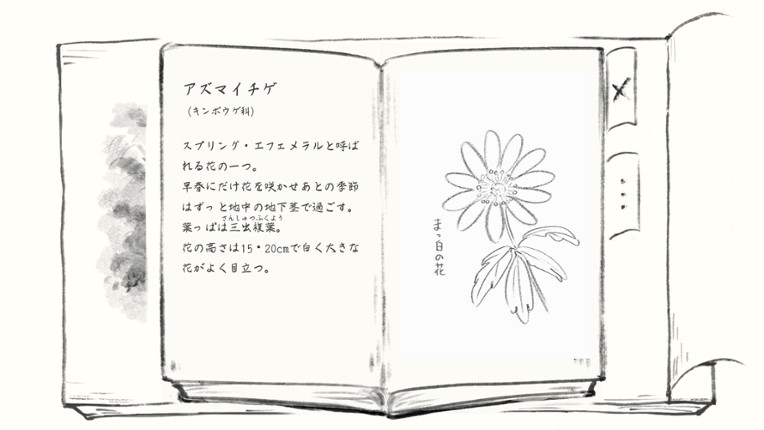 アズマイチゲ
(キンポウゲ科)
スプリング・エフェメラルと呼ば
れる花の一つ。
早春にだけ花を咲かせあとの季節
はずっと地中の地下茎で過ごす。
さんしゅつふくよう
葉っぱは三出複葉。
花の高さは15・20cmで白く大きな
花がよく目立つ。
まっ白の花